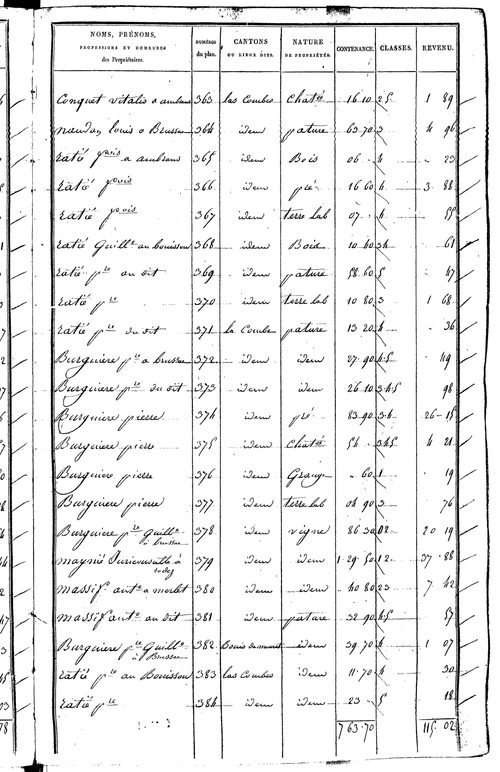 NOMS, PRÉNOMS, PROFESSIONS ET DEMEURES des Propriétaires. NUMÉROS du plan. CANTONS OU LIEUX DITS. NATURE DE PROPRIÉTÉS. CONTENANCE. CLASSES. REVENU.
Conquet vitalis a ambrans 363 las Combes Chatés 16 10 2 5 1 89
nauday louis a Brusse 364 idem pature 63 70 3 4 96
ratié fçois a ambrans 365 idem Bois 06 4 23
ratié fçois 366 idem pré 16 60 4 3 88
ratié fçois 367 idem terre lab 07 4 55
ratié Guill.e au bouisson 368 idem Bois 10 40 3 4 61
ratié p.re au dit 369 idem pature 58 60 5 67
ratié p.re 370 idem terre lab 10 80 3 1 68
ratié p.re du dit 371 la Combe pature 13 20 4 36
Burguiere p.re a brusse 372 idem idem 27 90 4 5 49
Burguiere p.re du dit 373 idem idem 26 10 3 4 5 98
Burguiere pierre 374 idem pré 83 90 3 4 26 15
Burguiere pierre 375 idem Chatés 54 3 4 5 4 21
Burguiere pierre 376 idem Grange 60 1 19
Burguiere pierre 377 idem terre lab 04 90 3 76
Burguiere p.re Guill.e a brusse 378 idem vigne 86 30 20 19
maynié a rodez 379 idem idem 1 29 50 1 2 37 88
massif ant.e a morlet 380 idem idem 40 80 2 3 7 42
massif ant.e au dit 381 idem pature 32 90 4 5 57
Burguiere p.re Guill.e a Brusse 382 idem 39 70 4 1 07
ratié p.re au Bouisson 383 las Combes idem 11 70 4 30
ratié p.re 384 idem idem 23 5 18
7 63 70 115 02